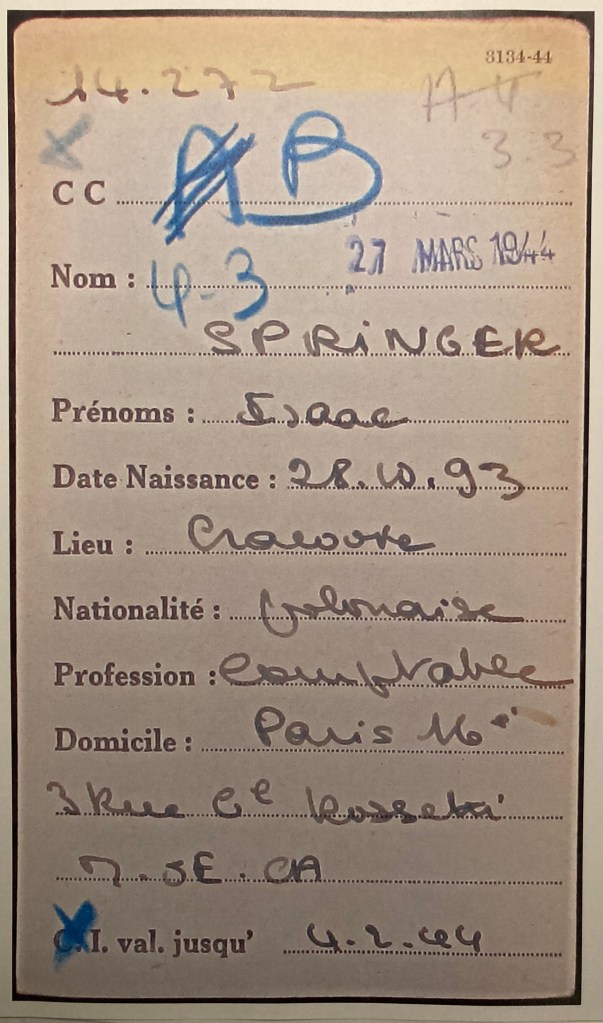 3134-44
14.272
A.V
3.3
C C B
27 MARS 1944
Nom : 4-3
SPRINGER
Prénoms : Isaac
Date Naissance : 28.10.93
Lieu : Cracovie
Nationalité : polonaise
Profession : Comptable
Domicile : Paris 16e
3 Rue Ce
M. SE. CA
C.I. val. jusqu' 4.2.44